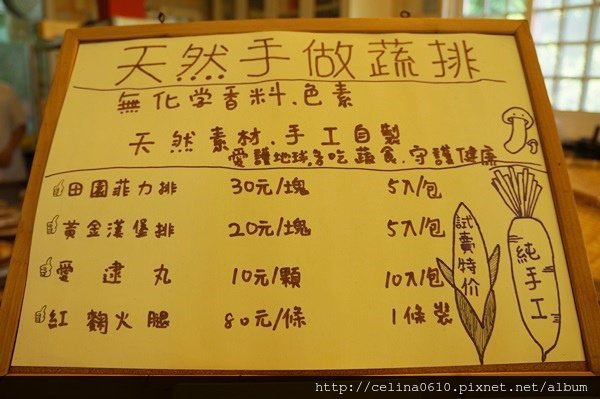 天然手做蔬排
無化学香料.色素
天然素材.手工自製
愛護地球.多吃蔬食.守護健康
田園菲力排 30元/塊 5入/包
黃金漢堡排 20元/塊 5入/包
愛達丸 10元/顆 10入/包
紅麴火腿 80元/條 1條裝
試賣特价
純手工
http://celina0610.pixnet.net/album